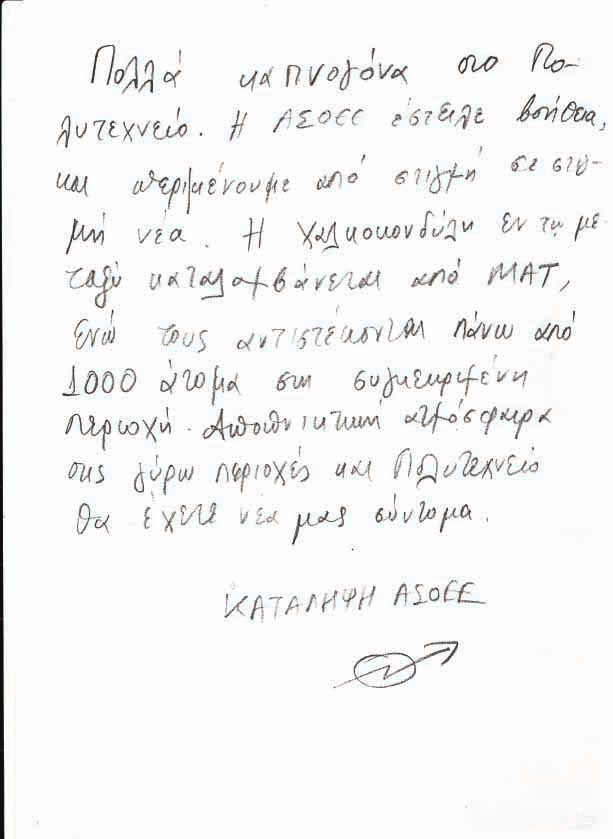 Πολλά καπνογόνα στο Πο-
λυτεχνείο. Η ΑΣΟΕΕ έστειλε βοήθεια,
και περιμένουμε από στιγμή σε στιγ-
μή νέα. Η Χαλκοκονδύλη εν τω με-
ταξύ καταλαμβάνεται από ΜΑΤ,
ενώ τους αντιστέκονται πάνω από
1000 άτομα στη συγκεκριμένη
περιοχή. Αποπνικτική ατμόσφαιρα
στις γύρω περιοχές και Πολυτεχνείο
θα έχετε νέα μας σύντομα.
ΚΑΤΑΛΗΨΗ ΑΣΟΕΕ